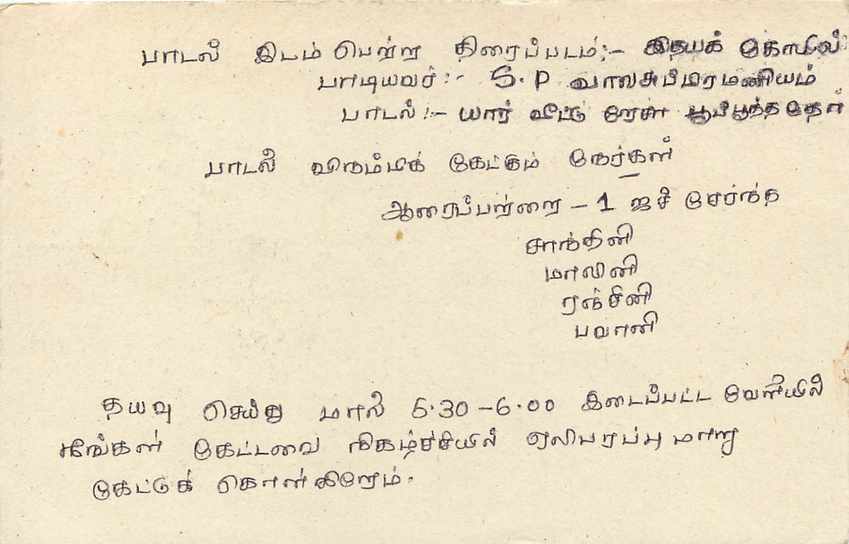 பாடல் இடம் பெற்ற திரைப்படம்:- இதயக் கோயில்
பாடியவர்:- S.P பாலசுப்பிரமணியம்
பாடல்:- யார் வீட்டு ரோசா பூப்பூத்ததோ
பாடல் விரும்பிக் கேட்கும் நேர்கள்
ஆரைப்பற்றை - 1 ஐச் சேர்ந்த
சாந்தினி
மாலினி
ரஞ்சினி
பவானி
தயவு செய்து மாலை 5.30 - 6.00 இடைப்பட்ட வேளையில்
நீங்கள் கேட்டவை நிகழ்ச்சியில் ஒலிபரப்பு மாறு
கேட்டுக் கொள்கிறேம்.